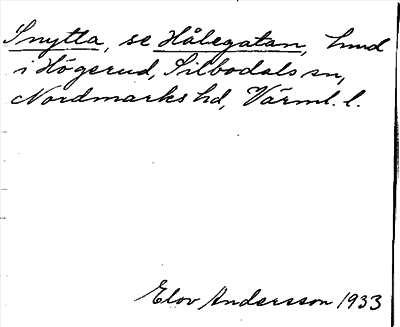 Snytta, se Håbegatan, hmd
i Högserud, Silbodals sn,
Nordmarks hd, Värml. l.
Elov Andersson 1933